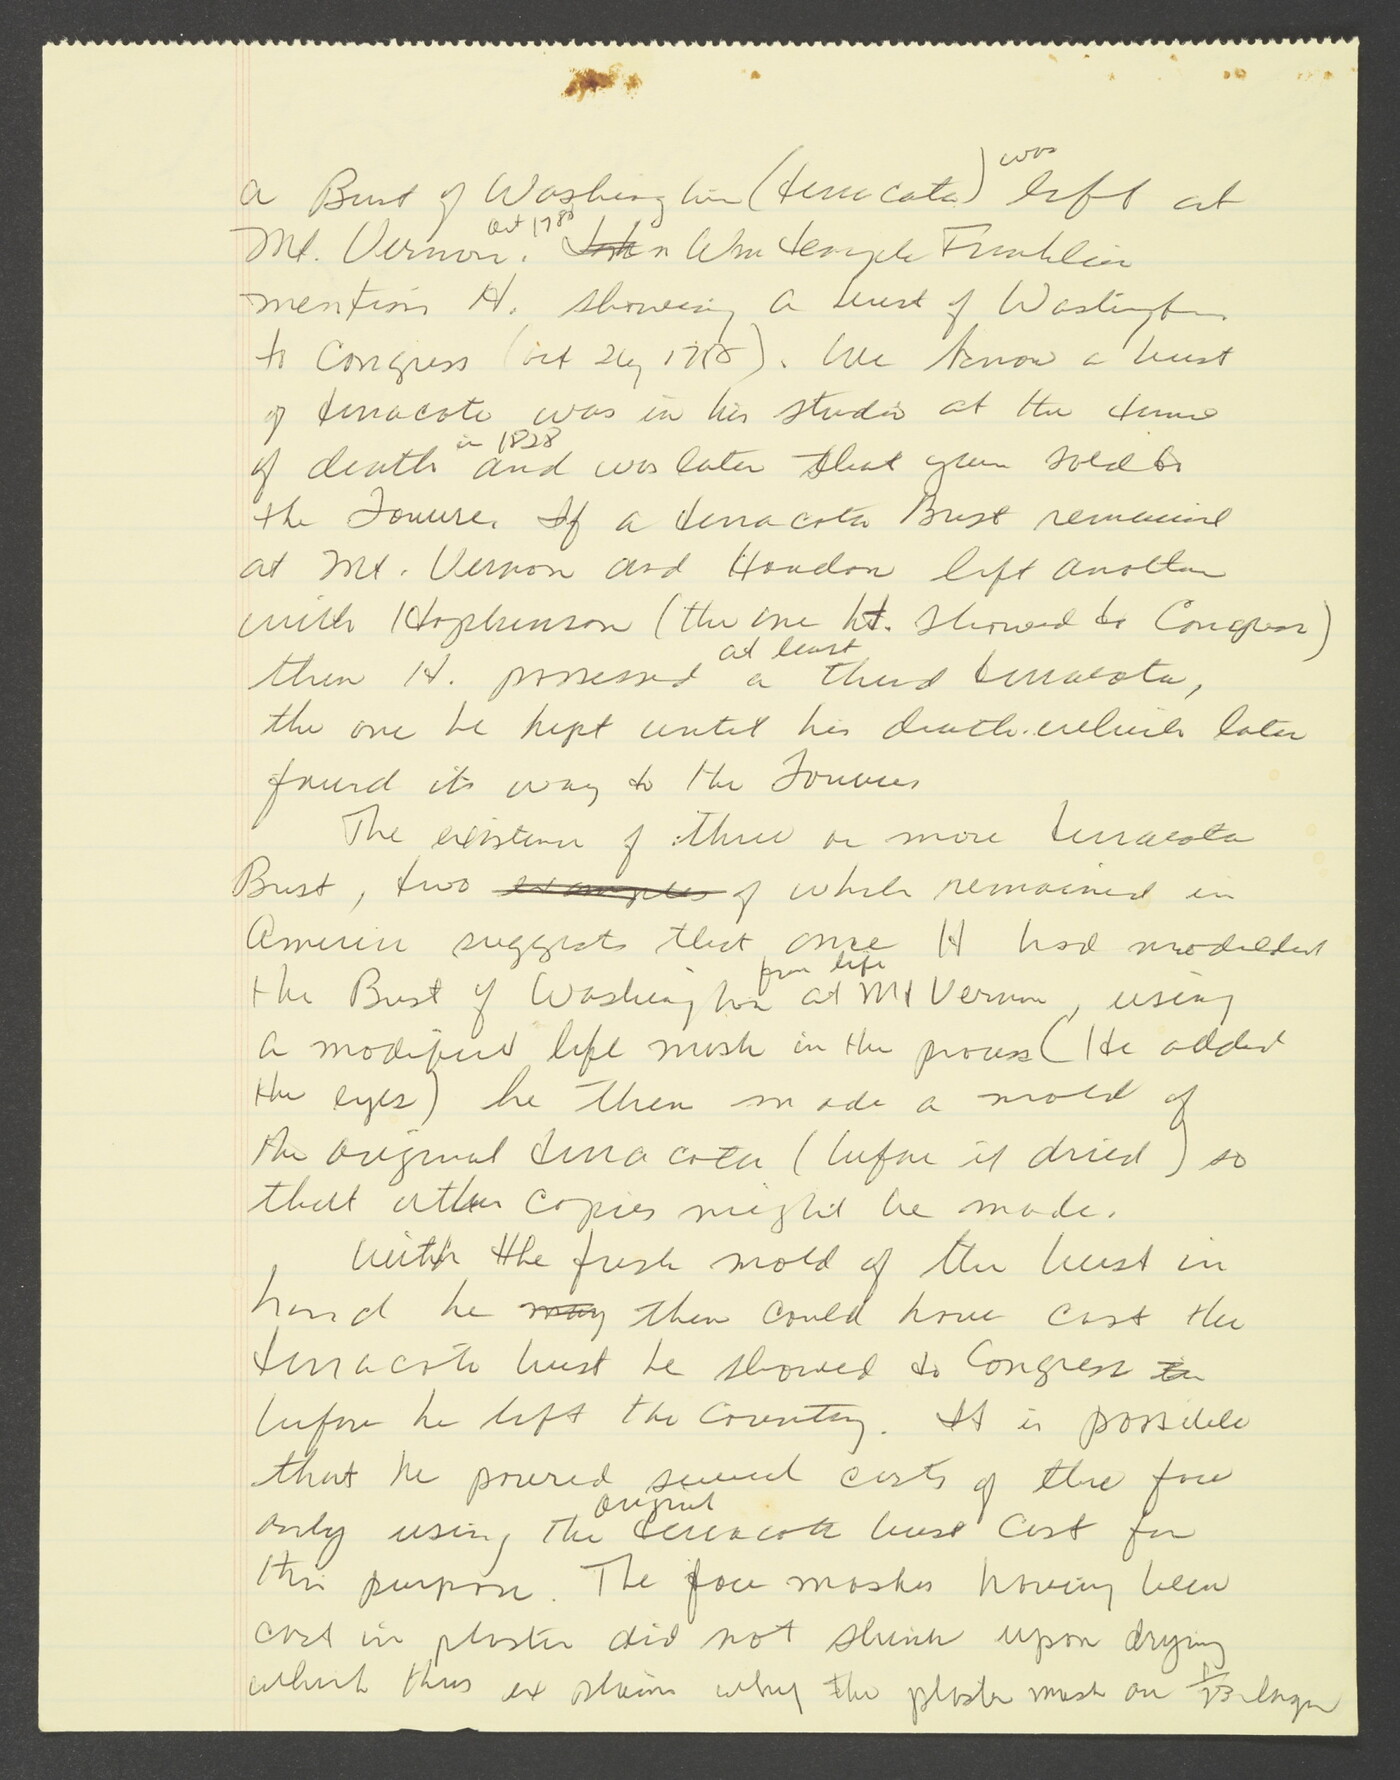 a Bust of Washington (terracota) was left at
Mt. Vernon. Oct 1785 Wm temple Franklin
mentions H. showing a bust of Washington
to Congress (oct 26, 1785). We know a bust
of terracota was in his studio at the time
of death in 1828 and was later that year sold to
the Louvre. If a terracota Bust remained
at Mt. Vernon and Houdon left another
with Hopkinson (the one H. showed to Congress)
then H. possessed at least a third terracota,
the one he kept until his death which later
found its way to the Louvre
The existence of three or more terracota
Bust, two examples of which remained in
America suggests that once H had modelded
the Bust of Washington from life at Mt Vernon, using
a modified life mask in the process (He added
the eyes) he then made a mold of
the original terracota (before it dried) so
that other copies might be made.
with the fresh mold of the bust in
hand he may then could have cast the
terracota bust he showed to Congress
before he left the Country. It is possible
that he poured several casts of the face
only using the original terracota bust cast for
this purpose. The face masks having been
cast in plaster did not shrink upon drying
which thus explains why the plaster mask are larger